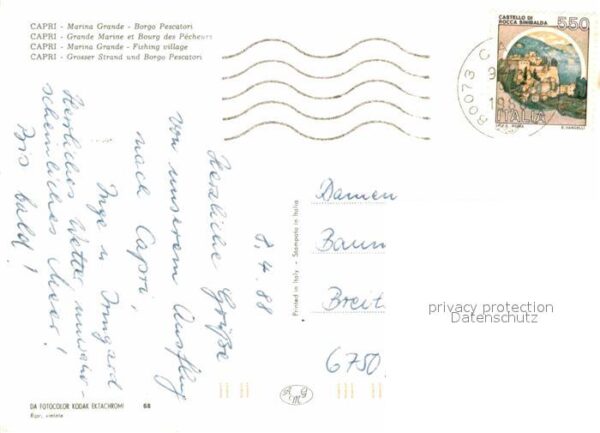 CAPRI - Marina Grande - Borgo Pescatori
CAPRI - Grande Marine et Bourg des Pécheurs
CAPRI - Marina Grande - Fishing village
CAPRI - Grosser Strand und Borgo Pescatori
CASTELLO DI
ROCCA SINIBALDA
550
ITALIA
80073 CA
8.4.88
Herzliche Grüße
von unserem Ausflug
nach Capri,
Inge u. Irmgard
Herrliches Wetter, unwahr-
scheinliches Meer!
Bis bald!
Printed in Italy - Stampato in Italia
Damen
Baum
Breit
6750
privacy protection
Datenschutz
DA FOTOCOLOR KODAK EKTACHROME 68